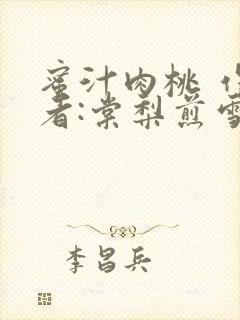 蜜汁肉桃 作
者:棠梨煎雪
李昌兵